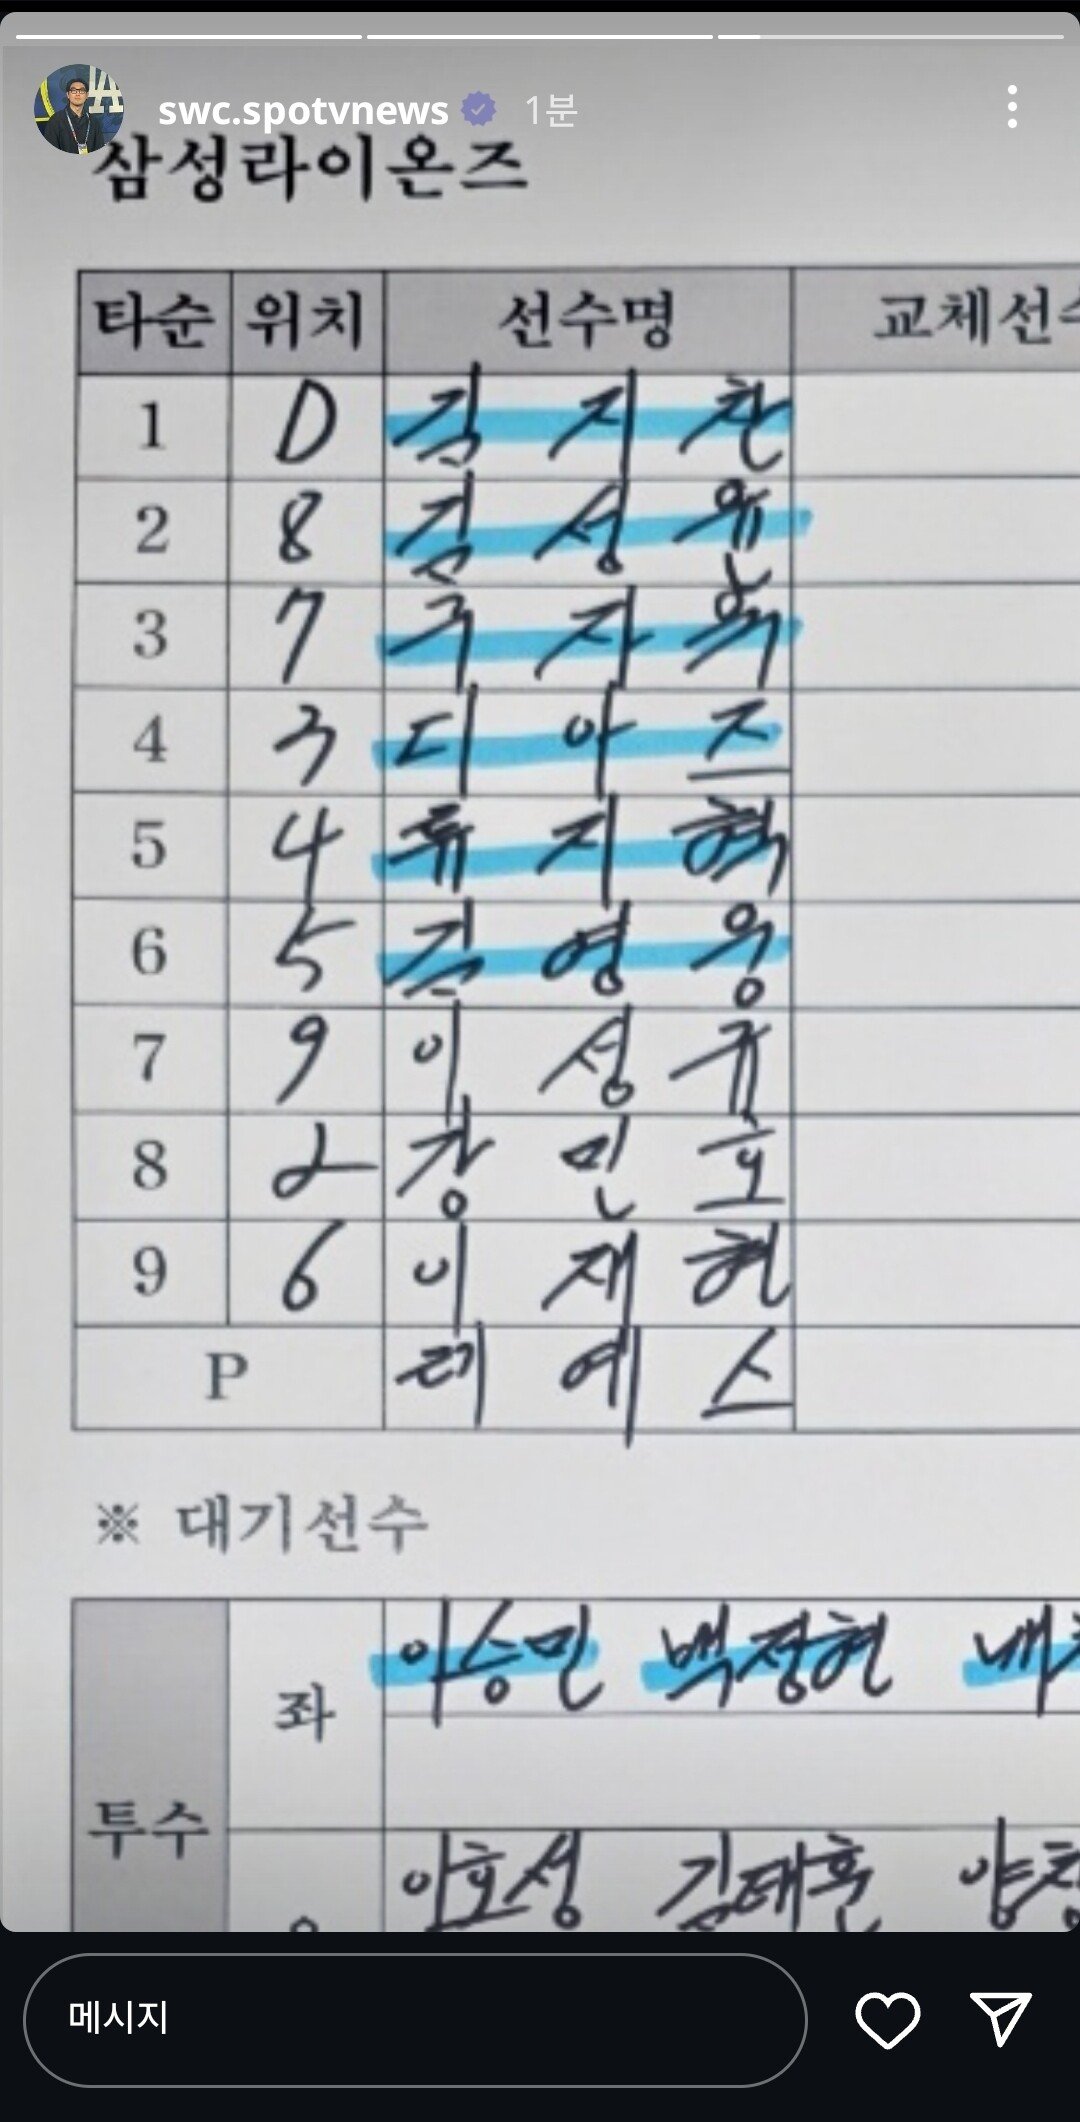 swc.spotvnews 1분
삼성라이온즈
타순 위치 선수명 교체선수
1 D 김지찬
2 8 김성윤
3 7 구자욱
4 3 디아즈
5 4 류지혁
6 5 김영웅
7 9 이성규
8 2 강민호
9 6 이재현
P 레예스
※ 대기선수
투수
좌 이승민 백정현 배
이호성 김태훈 양창
메시지